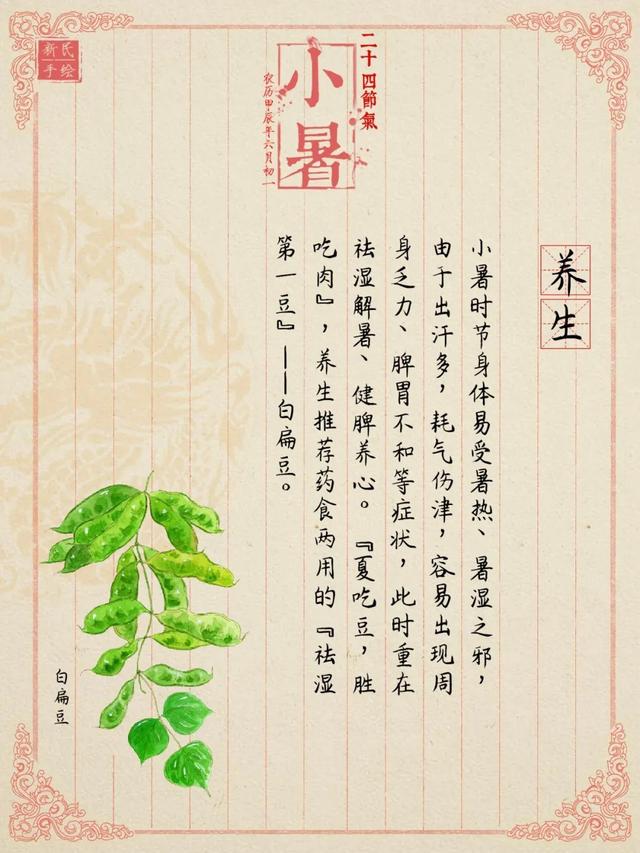 新氏
手绘
二十四節氣
小暑
农历甲辰年六月初一
养生
小暑时节身体易受暑热、暑湿之邪，
由于出汗多，耗气伤津，容易出现周
身乏力、脾胃不和等症状，此时重在
祛湿解暑、健脾养心。『夏吃豆，胜
吃肉』，养生推荐药食两用的『祛湿
第一豆』——白扁豆。
白扁豆